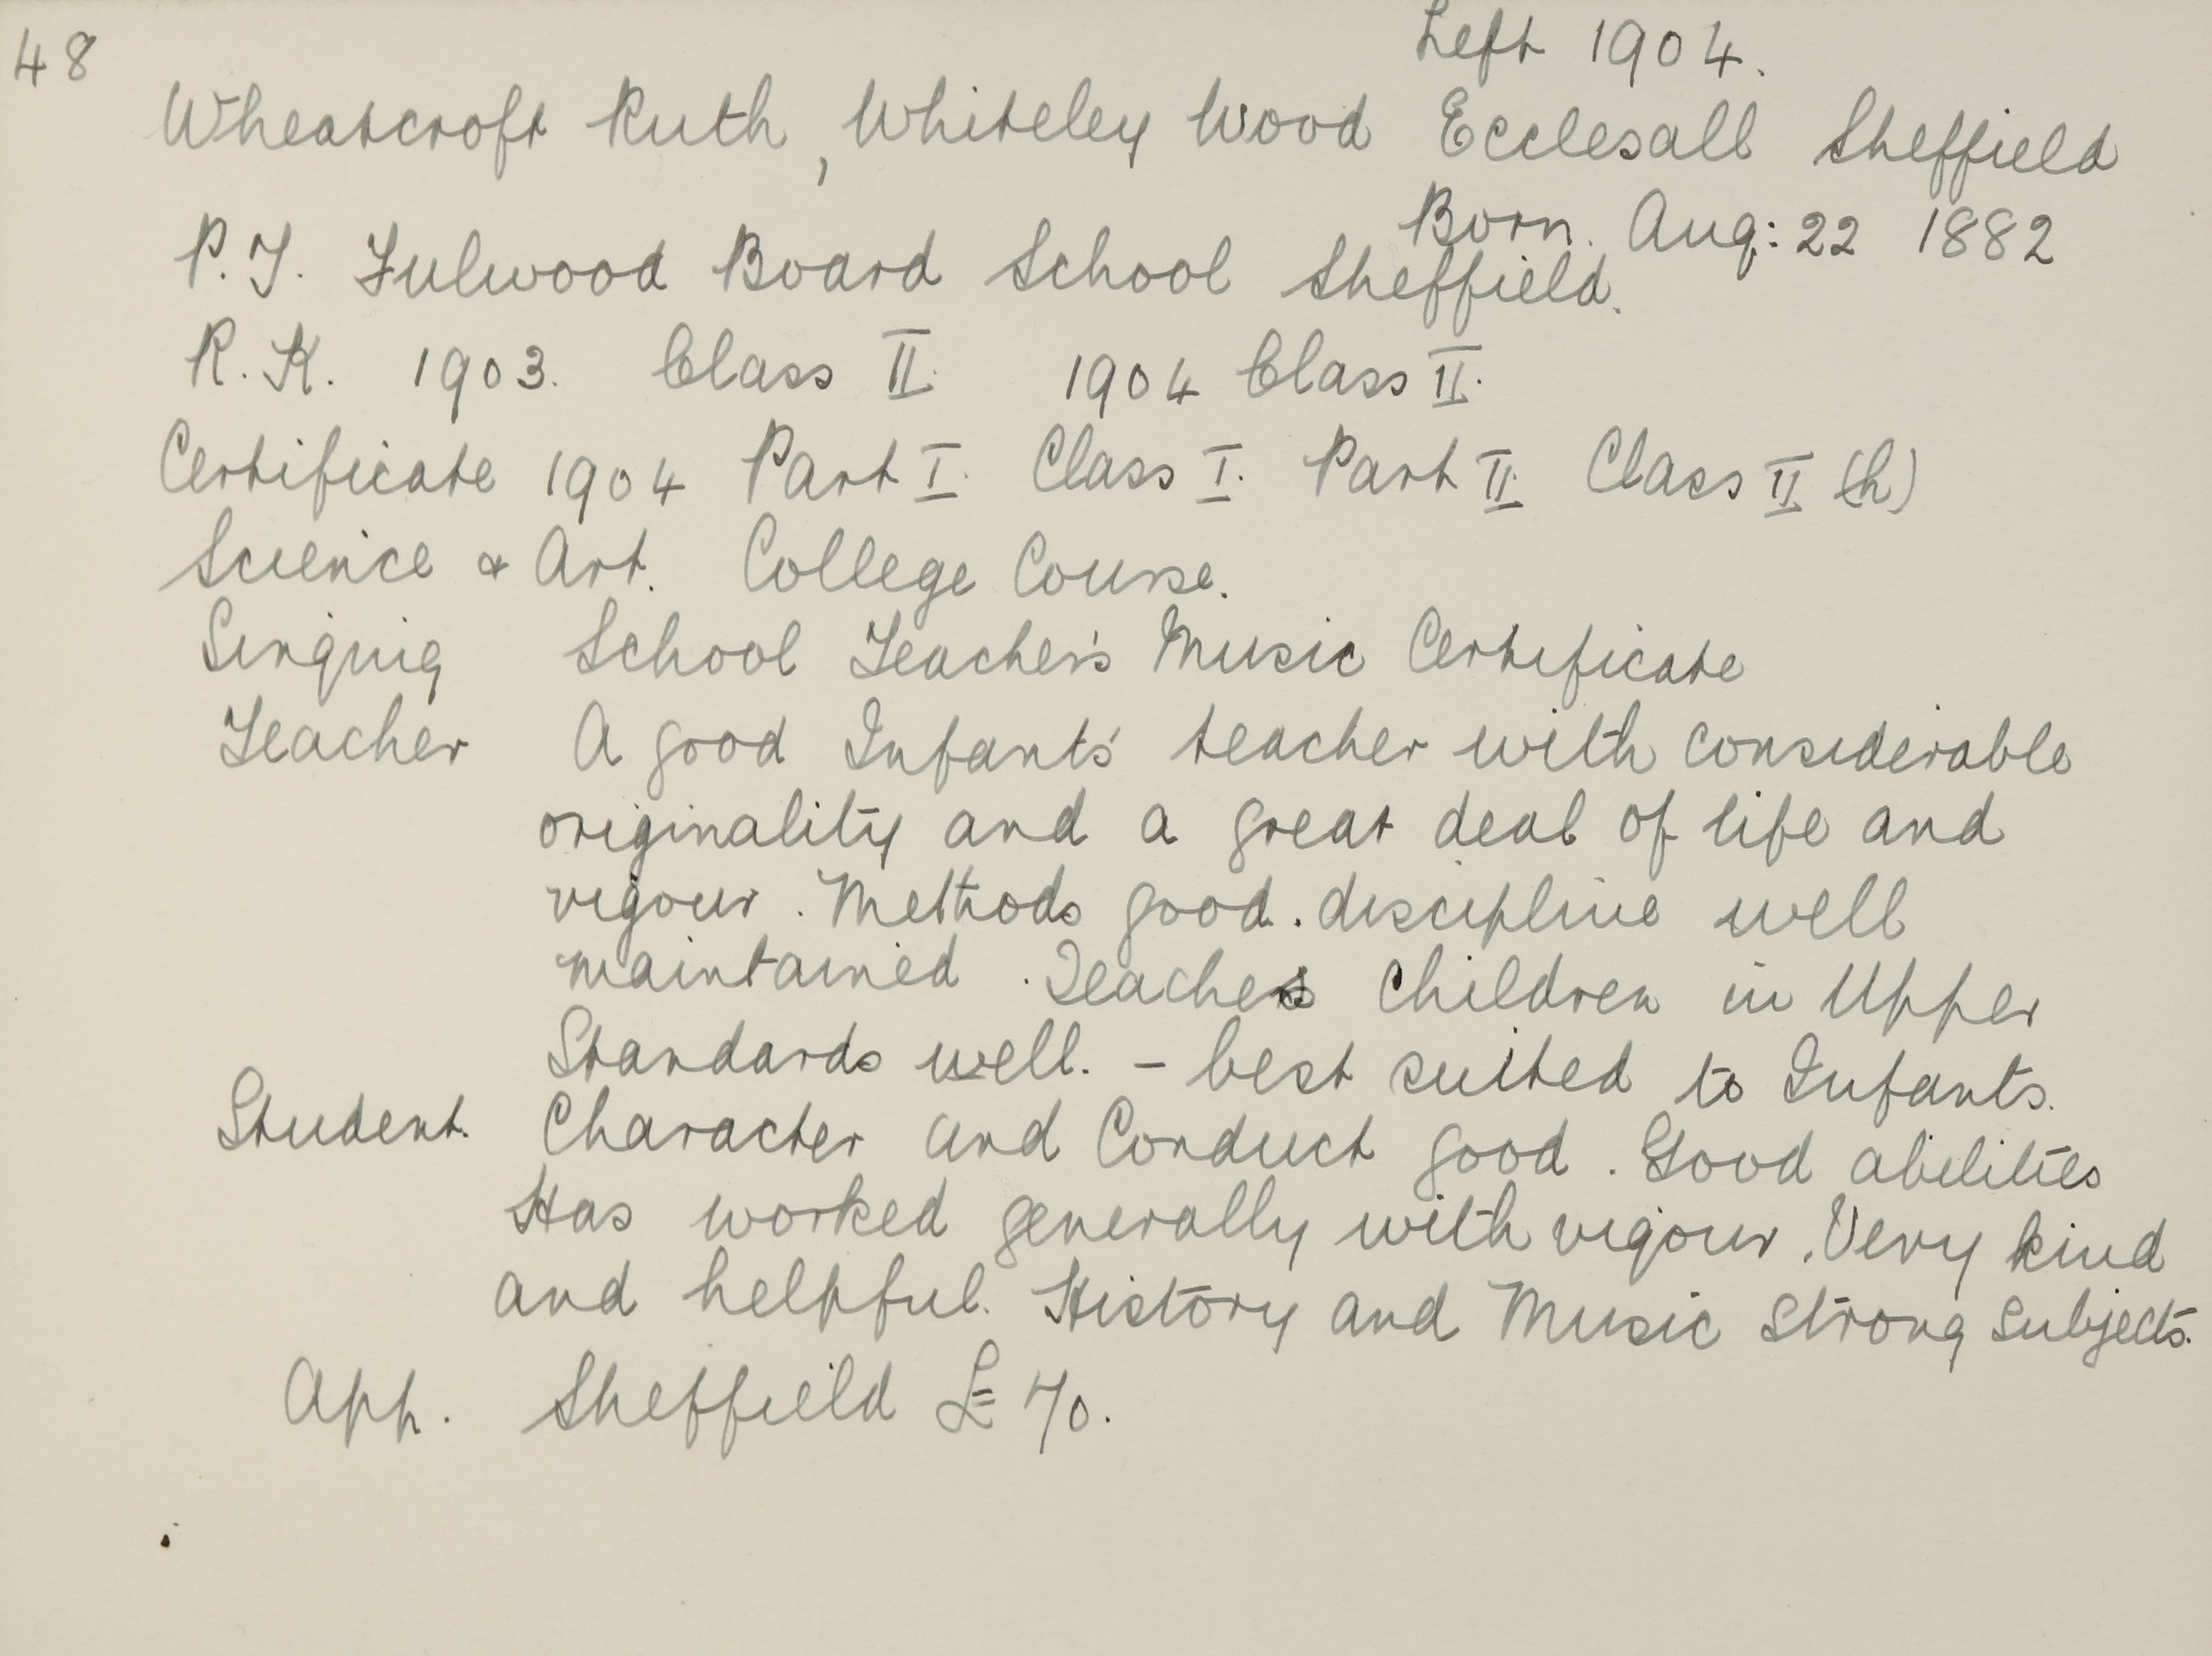 48
Left 1904.
Wheatcroft Ruth, Whiteley Wood Ecclesall Sheffield
Born. Aug: 22 1882
P.T. Fulwood Board School Sheffield.
R.K. 1903. Class II. 1904 Class II.
Certificate 1904 Part I. Class I. Part II. Class II (h)
Science & Art. College Course.
Singing School Teacher's Music Certificate
Teacher A good Infants' teacher with considerable
originality and a great deal of life and
vigour. Methods good. discipline well
maintained. Teaches children in Upper
Standards well. - best suited to Infants.
Student. Character and Conduct good. Good abilities
Has worked generally with vigour. Very kind
and helpful. History and Music strong subjects.
App. Sheffield £70.